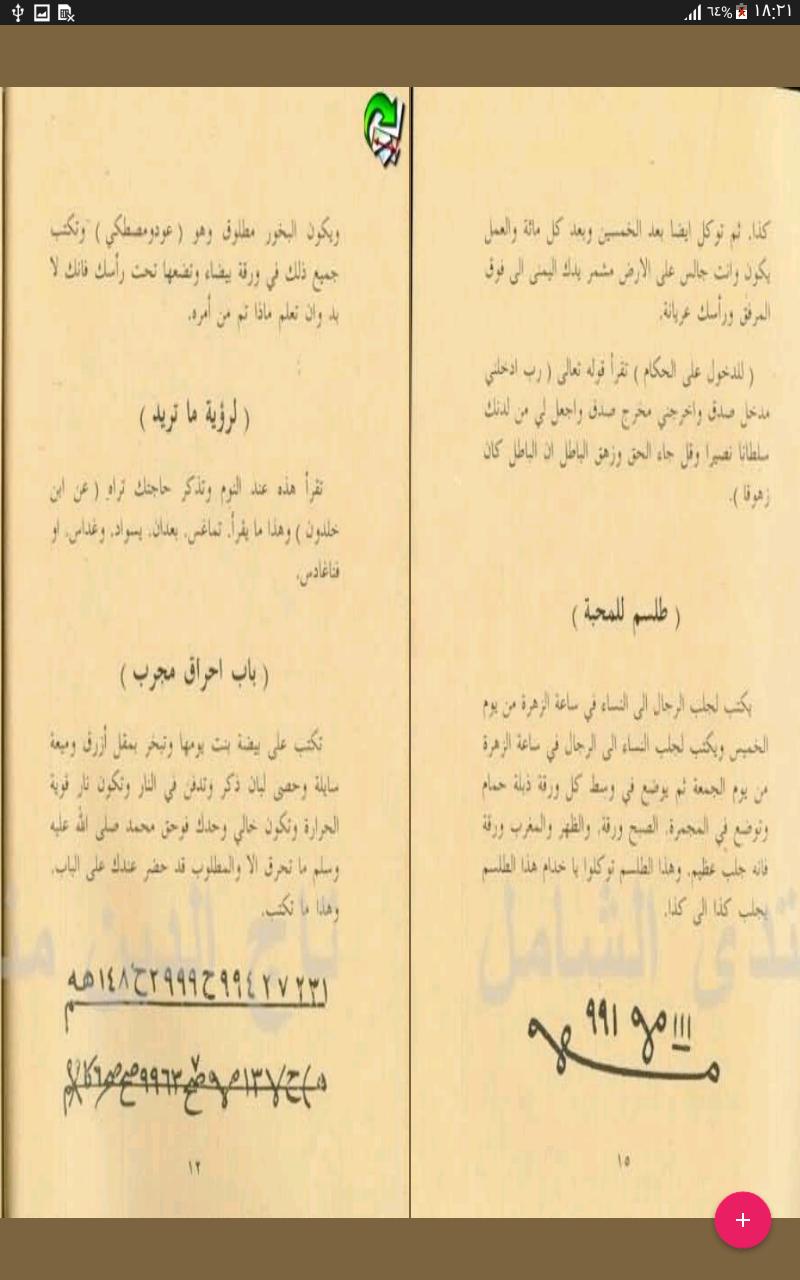 ٦٤% ١٨:٢١
كذا. ثم توكل ايضا بعد الخمسين وبعد كل مائة والعمل
يكون وانت جالس على الارض مشمر يدك اليمنى الى فوق
المرفق ورأسك عريانة.
( للدخول على الحكام ) تقرأ قوله تعالى ( رب ادخلني
مدخل صدق واخرجني مخرج صدق واجعل لي من لدنك
سلطانا نصيرا وقل جاء الحق وزهق الباطل ان الباطل كان
زهوقا ).
( طلسم للمحبة )
يكتب لجلب الرجال الى النساء في ساعة الزهرة من يوم
الخميس ويكتب لجلب النساء الى الرجال في ساعة الزهرة
من يوم الجمعة ثم يوضع في وسط كل ورقة ذبلة حمام
وتوضع في المجمرة. الصبح ورقة. والظهر والمغرب ورقة
فانه جلب عظيم. وهذا الطلسم توكلوا يا خدام هذا الطلسم
بجلب كذا الى كذا.
١٥
ويكون البخور مطلوق وهو ( عودومصطكي ) وتكتب
جميع ذلك في ورقة بيضاء وتضعها تحت رأسك فانك لا
بد وان تعلم ماذا تم من أمره.
( لرؤية ما تريد )
تقرأ هذه عند النوم وتذكر حاجتك تراه ( عن ابن
خلدون ) وهذا ما يقرأ. تماغس. بعدان. يسواد. وغداس. او
فناغادس.
( باب احراق مجرب )
تكتب على بيضة بنت يومها وتبخر بمقل أزرق وميعة
سايلة وحصى لبان ذكر وتدفن في النار وتكون نار قوية
الحرارة وتكون خالي وحدك فوحق محمد صلى الله عليه
وسلم ما تحرق الا والمطلوب قد حضر عندك على الباب.
وهذا ما تكتب.
١٢